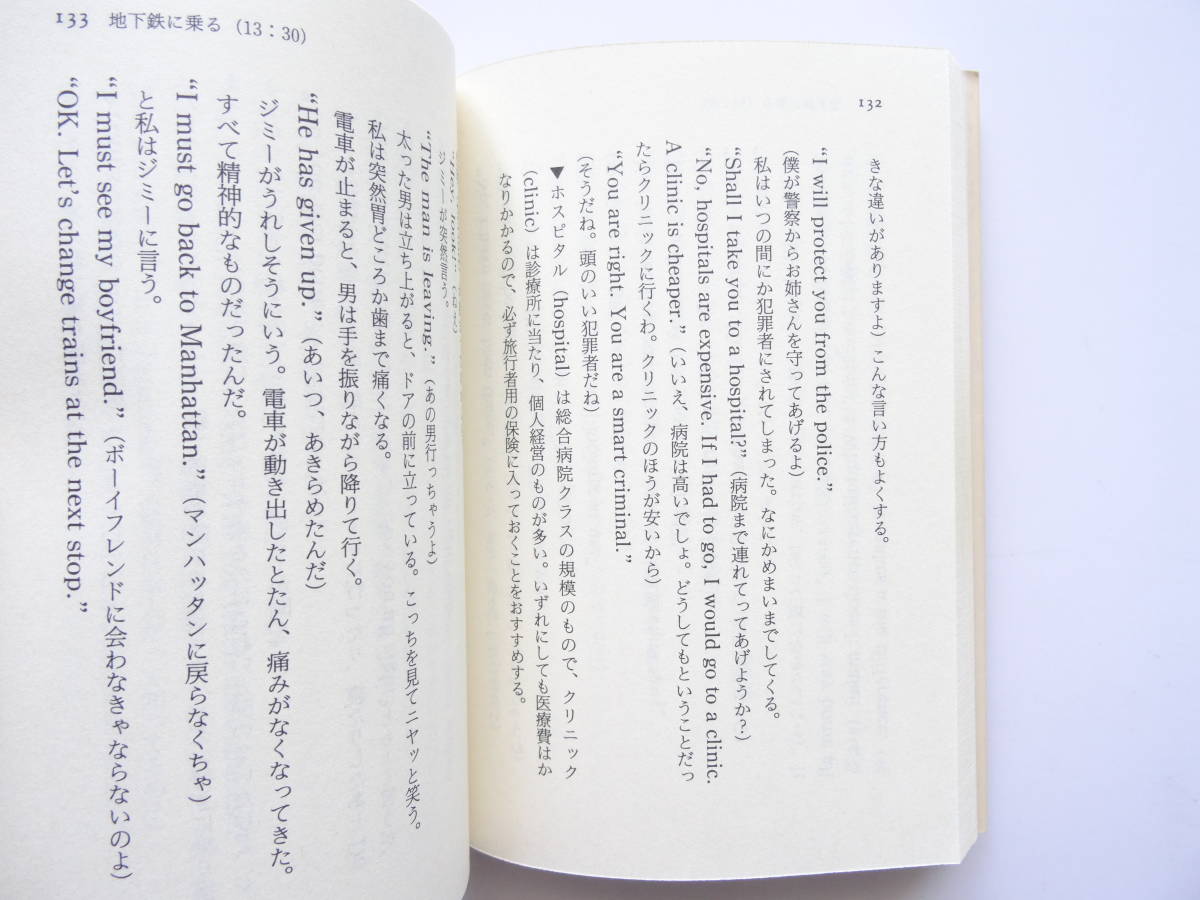 132
きな違いがありますよ）こんな言い方もよくする。
“I will protect you from the police.”
（僕が警察からお姉さんを守ってあげるよ）
私はいつの間にか犯罪者にされてしまった。なにかめまいまでしてくる。
“Shall I take you to a hospital?”（病院まで連れてってあげようか？）
“No, hospitals are expensive. If I had to go, I would go to a clinic.
A clinic is cheaper.”（いいえ、病院は高いでしょ。どうしてもということだっ
たらクリニックに行くわ。クリニックのほうが安いから）
“You are right. You are a smart criminal.”
（そうだね。頭のいい犯罪者だね）
▼ホスピタル（hospital）は総合病院クラスの規模のもので、クリニック
（clinic）は診療所に当たり、個人経営のものが多い。いずれにしても医療費はか
なりかかるので、必ず旅行者用の保険に入っておくことをおすすめする。
133 地下鉄に乗る（13：30）
“Hey, look!”
ジミーが突然言う。
“The man is leaving.”（あの男行っちゃうよ）
太った男は立ち上がると、ドアの前に立っている。こっちを見てニヤッと笑う。
私は突然胃どころか歯まで痛くなる。
電車が止まると、男は手を振りながら降りて行く。
“He has given up.”（あいつ、あきらめたんだ）
ジミーがうれしそうにいう。電車が動き出したとたん、痛みがなくなってきた。
すべて精神的なものだったんだ。
“I must go back to Manhattan.”（マンハッタンに戻らなくちゃ）
と私はジミーに言う。
“I must see my boyfriend.”（ボーイフレンドに会わなきゃならないのよ）
“OK. Let’s change trains at the next stop.”